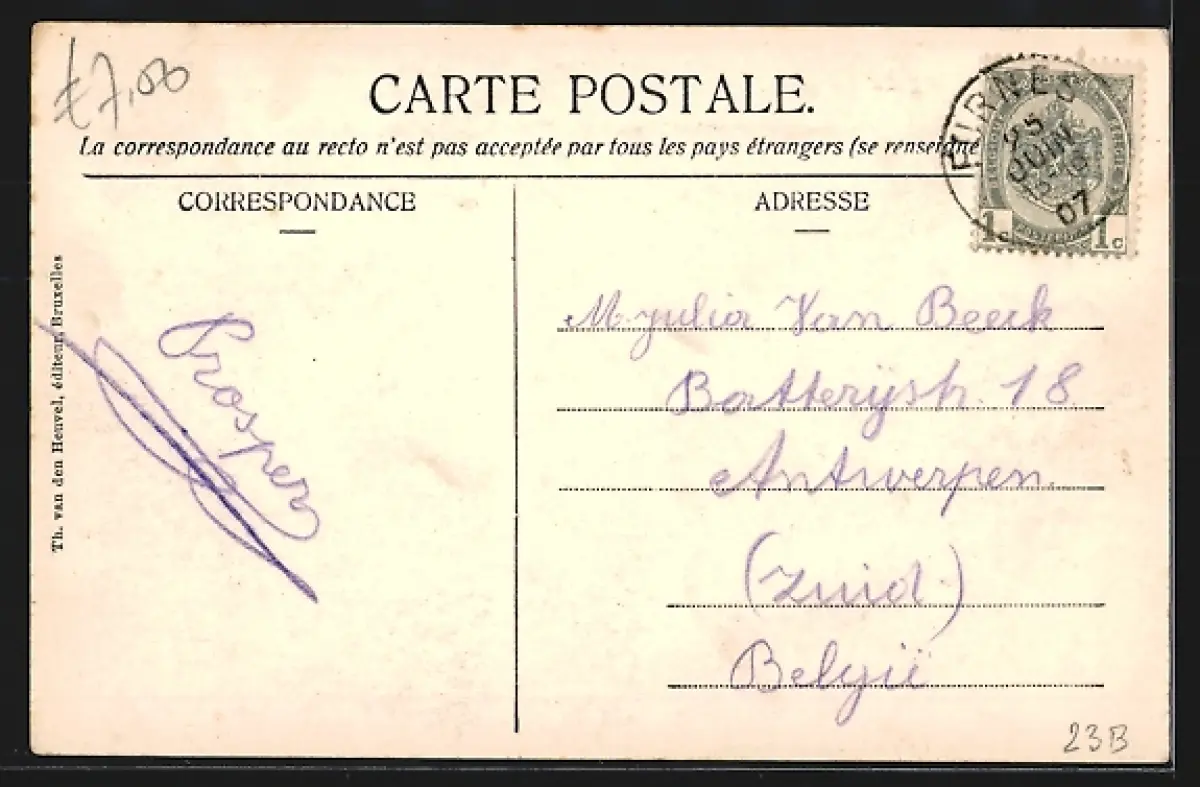 £7,00
CARTE POSTALE.
La correspondance au recto n'est pas acceptée par tous les pays étrangers (se renseigne
CORRESPONDANCE
ADRESSE
FURNES
25
JUIN
07
1c 1c
Th. van den Heuvel, éditeur, Bruxelles
Prosper
M. julia Van Beeck
Batterijstr. 18
Antwerpen.
(Zuid)
België
23B